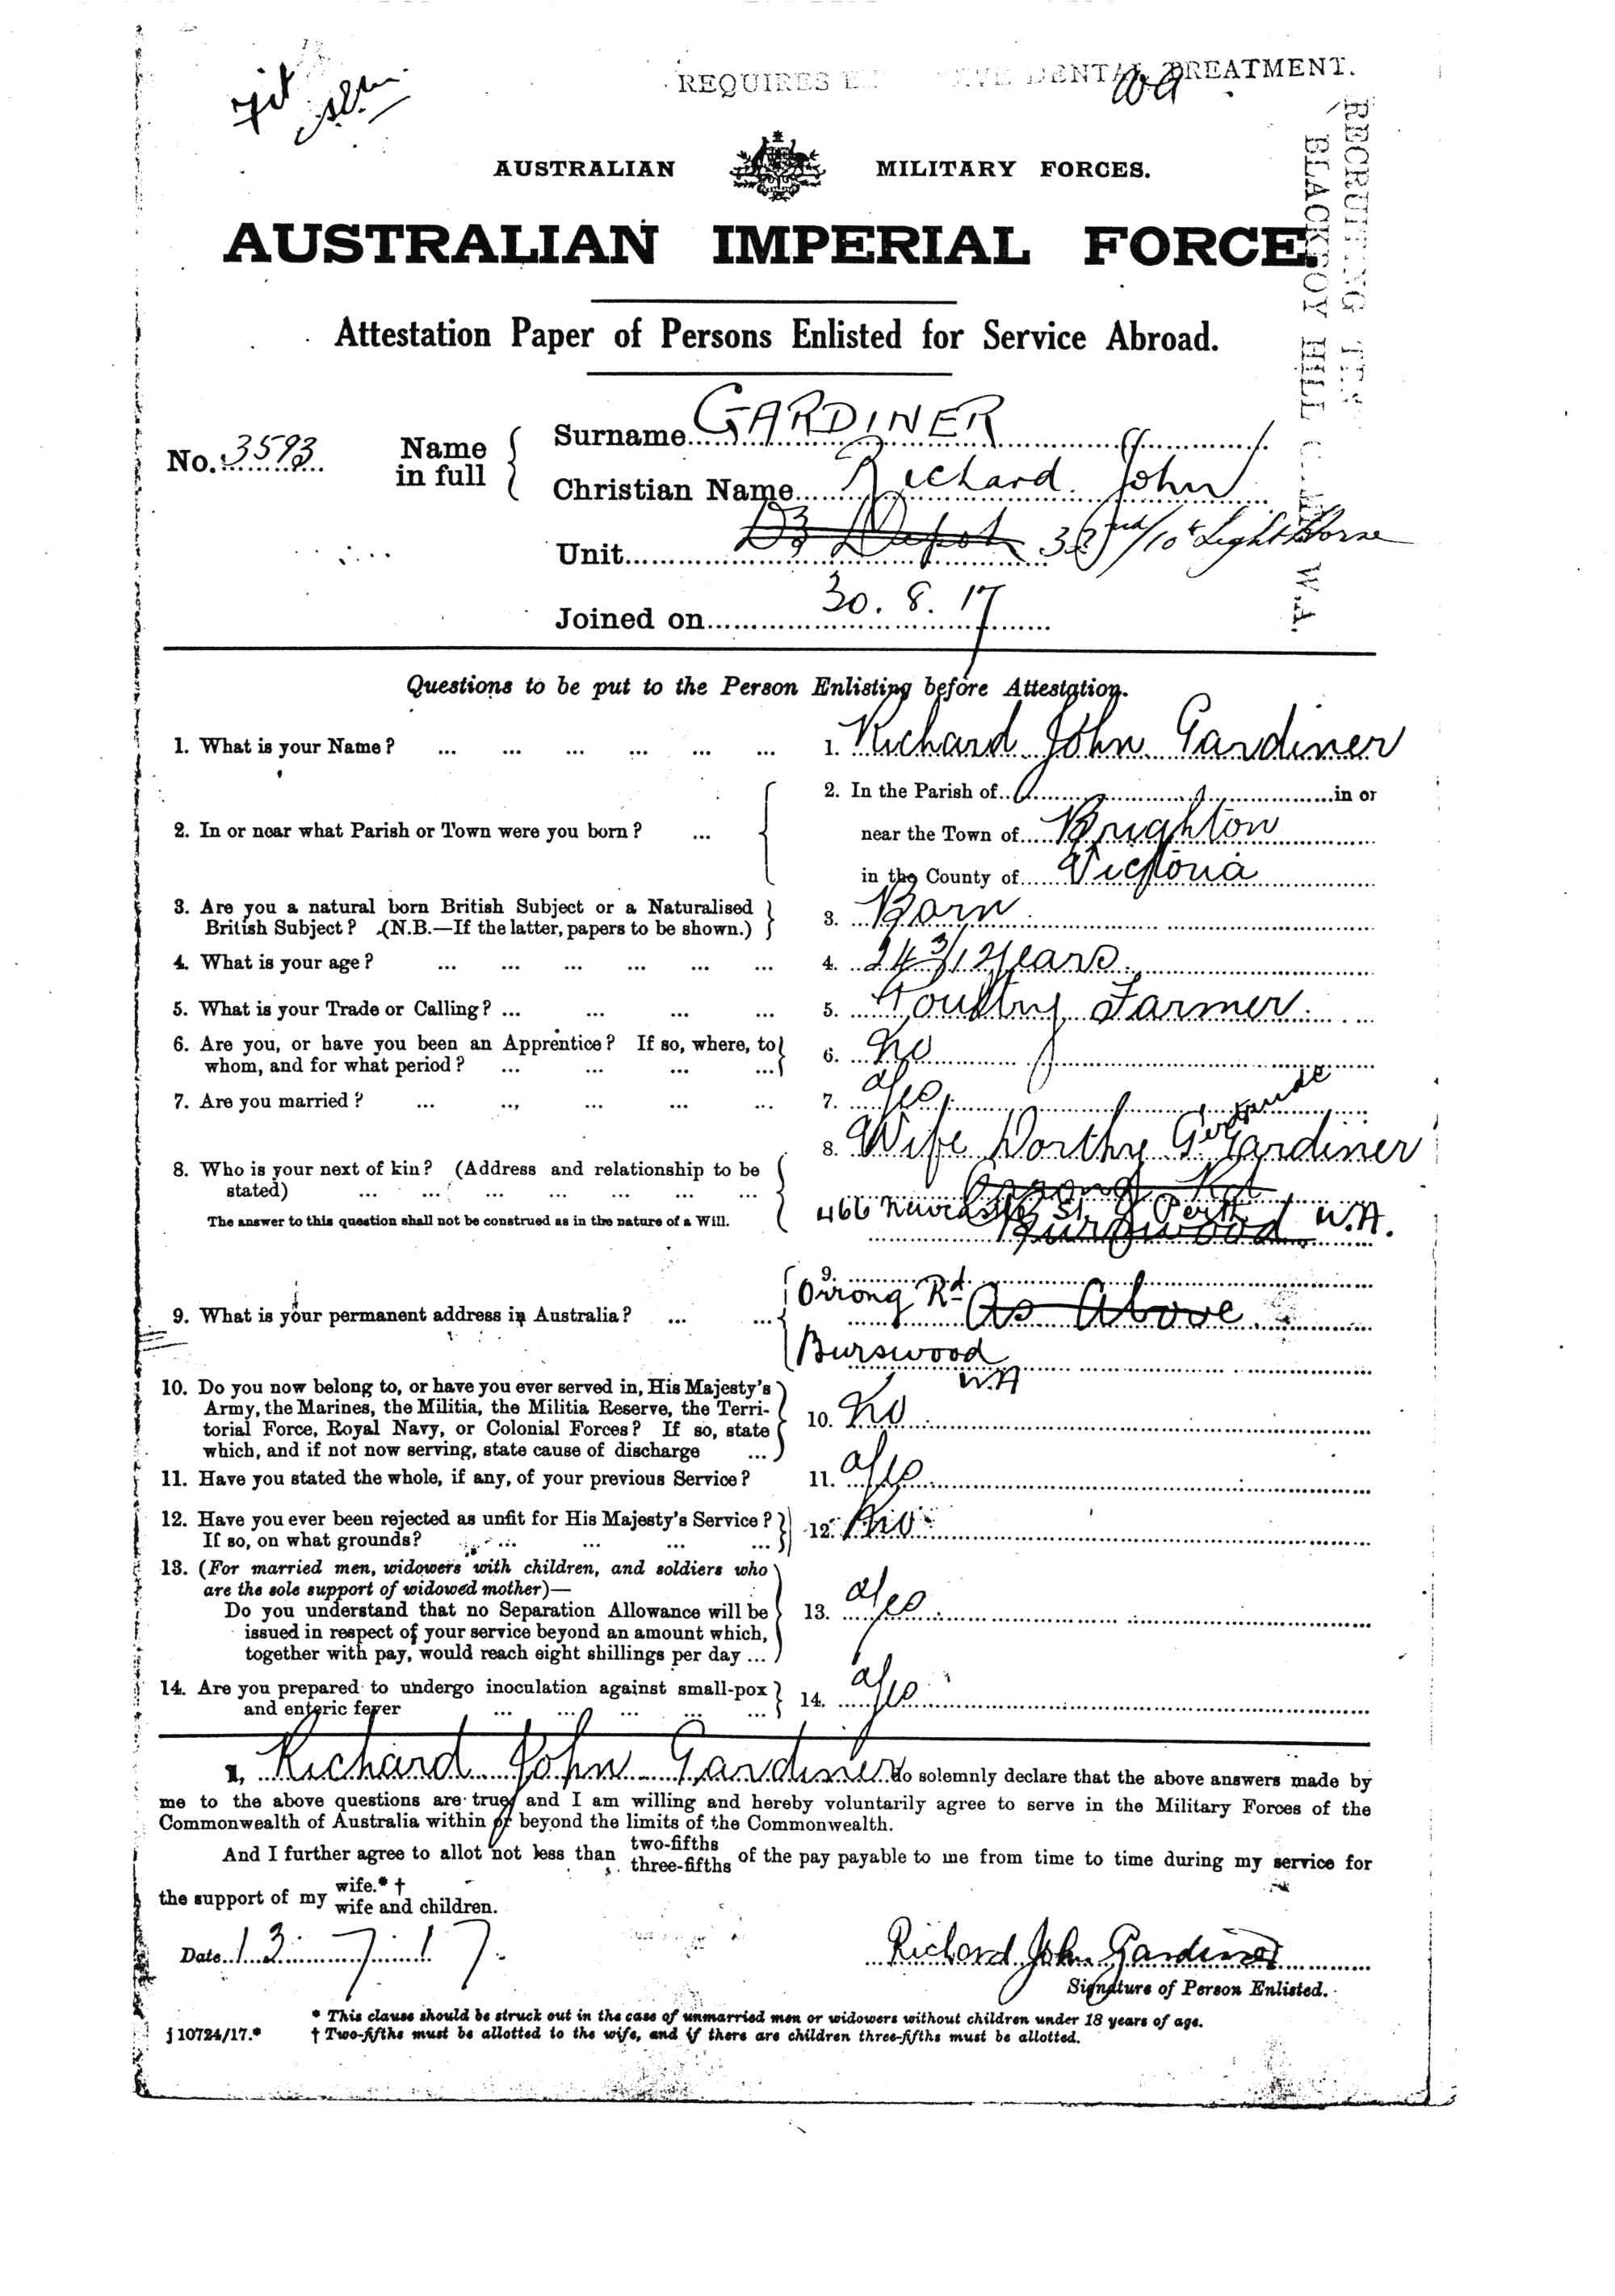 REQUIRES DENTAL TREATMENT.
RECRUITING
BLACKBOY HILL W.A.
AUSTRALIAN MILITARY FORCES.
AUSTRALIAN IMPERIAL FORCE.
Attestation Paper of Persons Enlisted for Service Abroad.
No. 3593 Name in full
Surname GARDINER
Christian Name Richard John
Unit Depot 32nd/10th Light Horse
Joined on 30.8.17
Questions to be put to the Person Enlisting before Attestation.
1. What is your Name? ... ... ... ... ... ... 1. Richard John Gardiner
2. In or near what Parish or Town were you born? ... 2. In the Parish of in or
near the Town of Brighton
in the County of Victoria
3. Are you a natural born British Subject or a Naturalised
British Subject? (N.B.—If the latter, papers to be shown.) 3. Born
4. What is your age? ... ... ... ... ... ... 4. 24 3/12 Years
5. What is your Trade or Calling? ... ... ... ... 5. Poultry Farmer
6. Are you, or have you been an Apprentice? If so, where, to
whom, and for what period? ... ... ... ... 6. No
7. Are you married? ... ... ... ... ... 7. Yes
8. Who is your next of kin? (Address and relationship to be
stated) ... ... ... ... ... ...
The answer to this question shall not be construed as in the nature of a Will.
8. Wife Dorthy Gertrude G. Gardiner
Orrong Rd
466 Newcastle St. Perth W.A.
Burswood
9. What is your permanent address in Australia? ... ... 9.
Orrong Rd As Above
Burswood
W.A
10. Do you now belong to, or have you ever served in, His Majesty's
Army, the Marines, the Militia, the Militia Reserve, the Terri-
torial Force, Royal Navy, or Colonial Forces? If so, state
which, and if not now serving, state cause of discharge ... 10. No
11. Have you stated the whole, if any, of your previous Service? 11. Yes
12. Have you ever been rejected as unfit for His Majesty's Service?
If so, on what grounds? ... ... ... ... 12. No
13. (For married men, widowers with children, and soldiers who
are the sole support of widowed mother)—
Do you understand that no Separation Allowance will be
issued in respect of your service beyond an amount which,
together with pay, would reach eight shillings per day ... 13. Yes
14. Are you prepared to undergo inoculation against small-pox
and enteric fever ... ... ... ... ... 14. Yes
I, Richard John Gardiner do solemnly declare that the above answers made by
me to the above questions are true, and I am willing and hereby voluntarily agree to serve in the Military Forces of the
Commonwealth of Australia within or beyond the limits of the Commonwealth.
And I further agree to allot not less than two-fifths three-fifths of the pay payable to me from time to time during my service for
the support of my wife.* † wife and children.
Date 13.7.17.
Richard John Gardiner
Signature of Person Enlisted.
* This clause should be struck out in the case of unmarried men or widowers without children under 18 years of age.
j 10724/17.* † Two-fifths must be allotted to the wife, and if there are children three-fifths must be allotted.